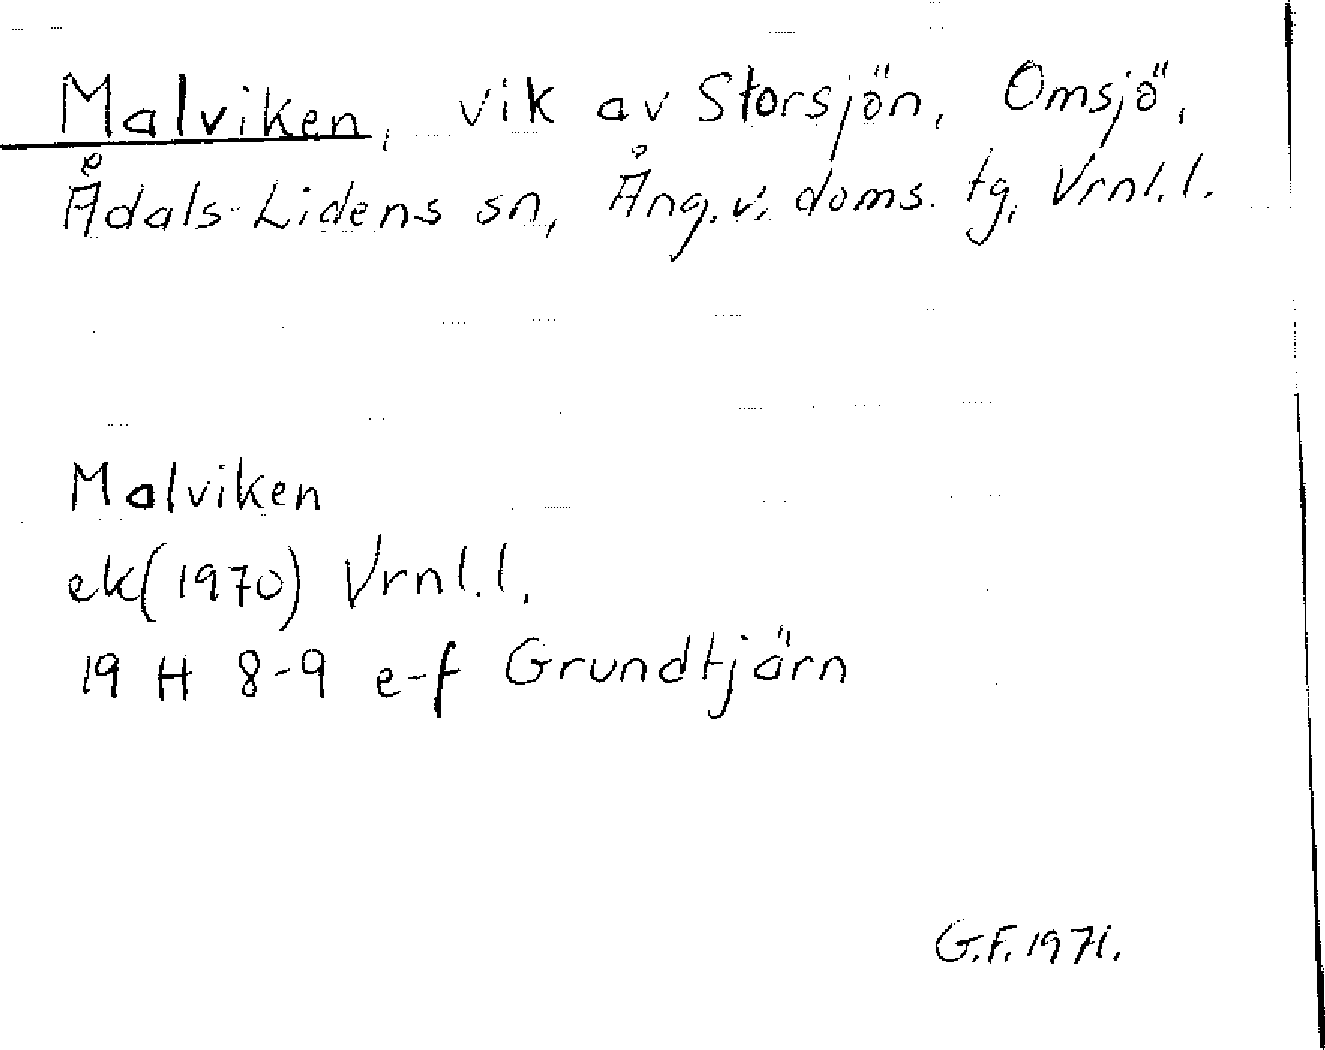 Malviken, vik av Storsjön, Omsjö,
Ådals-Lidens sn, Ång.v. doms. tg, Vrnl.l.
Malviken
ek(1970) Vrnl.l.
19 H 8-9 e-f Grundtjärn
G.F. 1971.